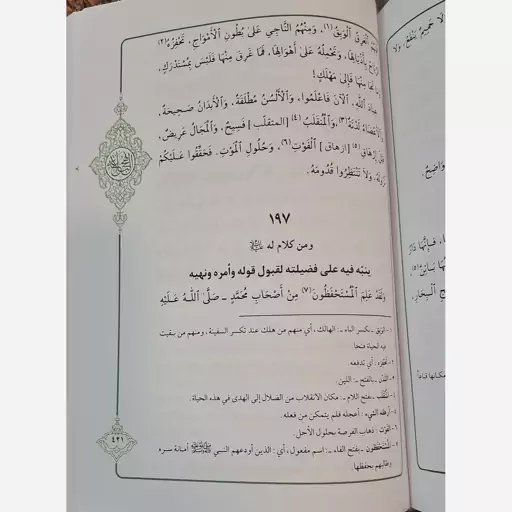 الْغَرِقُ الْوَبِقُ (١)، وَمِنْهُمُ النَّاجِي عَلَىٰ بُطُونِ الْأَمْوَاجِ، تَحْفِزُهُ (٢)
بِأَذْيَالِهَا، وَتَحْمِلُهُ عَلَىٰ أَهْوَالِهَا، فَمَا غَرِقَ مِنْهَا فَلَيْسَ بِمُسْتَدْرَكٍ،
نَجَا مِنْهَا فَإِلَىٰ مَهْلَكٍ!
عِبَادَ اللَّهِ، الْآنَ فَاعْلَمُوا، وَالْأَلْسُنُ مُطْلَقَةٌ، وَالْأَبْدَانُ صَحِيحَةٌ،
لَدْنَةٌ (٣)، وَالْمُنْقَلَبُ (٤) [المتقلب] فَسِيحٌ، وَالْمَجَالُ عَرِيضٌ،
إِرْهَاقِ (٥) [ازهاق] الْفَوْتِ (٦)، وَحُلُولِ الْمَوْتِ. فَحَقِّقُوا عَلَيْكُمْ
وَلَا تَنْتَظِرُوا قُدُومَهُ.
١٩٧
ومن كلام له
ينبّه فيه على فضيلته لقبول قوله وأمره ونهيه
وَلَقَدْ عَلِمَ الْمُسْتَحْفَظُونَ (٧) مِنْ أَصْحَابِ مُحَمَّدٍ ـ صَلَّى اللَّهُ عَلَيْهِ
١- الوَبِق ـ بكسر الباء ـ: الهالك، أي منهم من هلك عند تكسر السفينة، ومنهم من بقيت
فيه الحياة فنجا.
٢- تَحْفِزه: أي تدفعه.
ـ بالفتح ـ: اللين.
ـ بفتح اللام ـ: مكان الانقلاب من الضلال إلى الهدى في هذه الحياة.
أعجله فلم يتمكن من فعله.
الفَوْت: ذهاب الفرصة بحلول الأجل.
المُسْتَحْفَظُون ـ بفتح الفاء ـ: اسم مفعول، أي: الذين أودعهم النبي ﷺ أمانة سره
وطالبهم بحفظها.
٤٢١